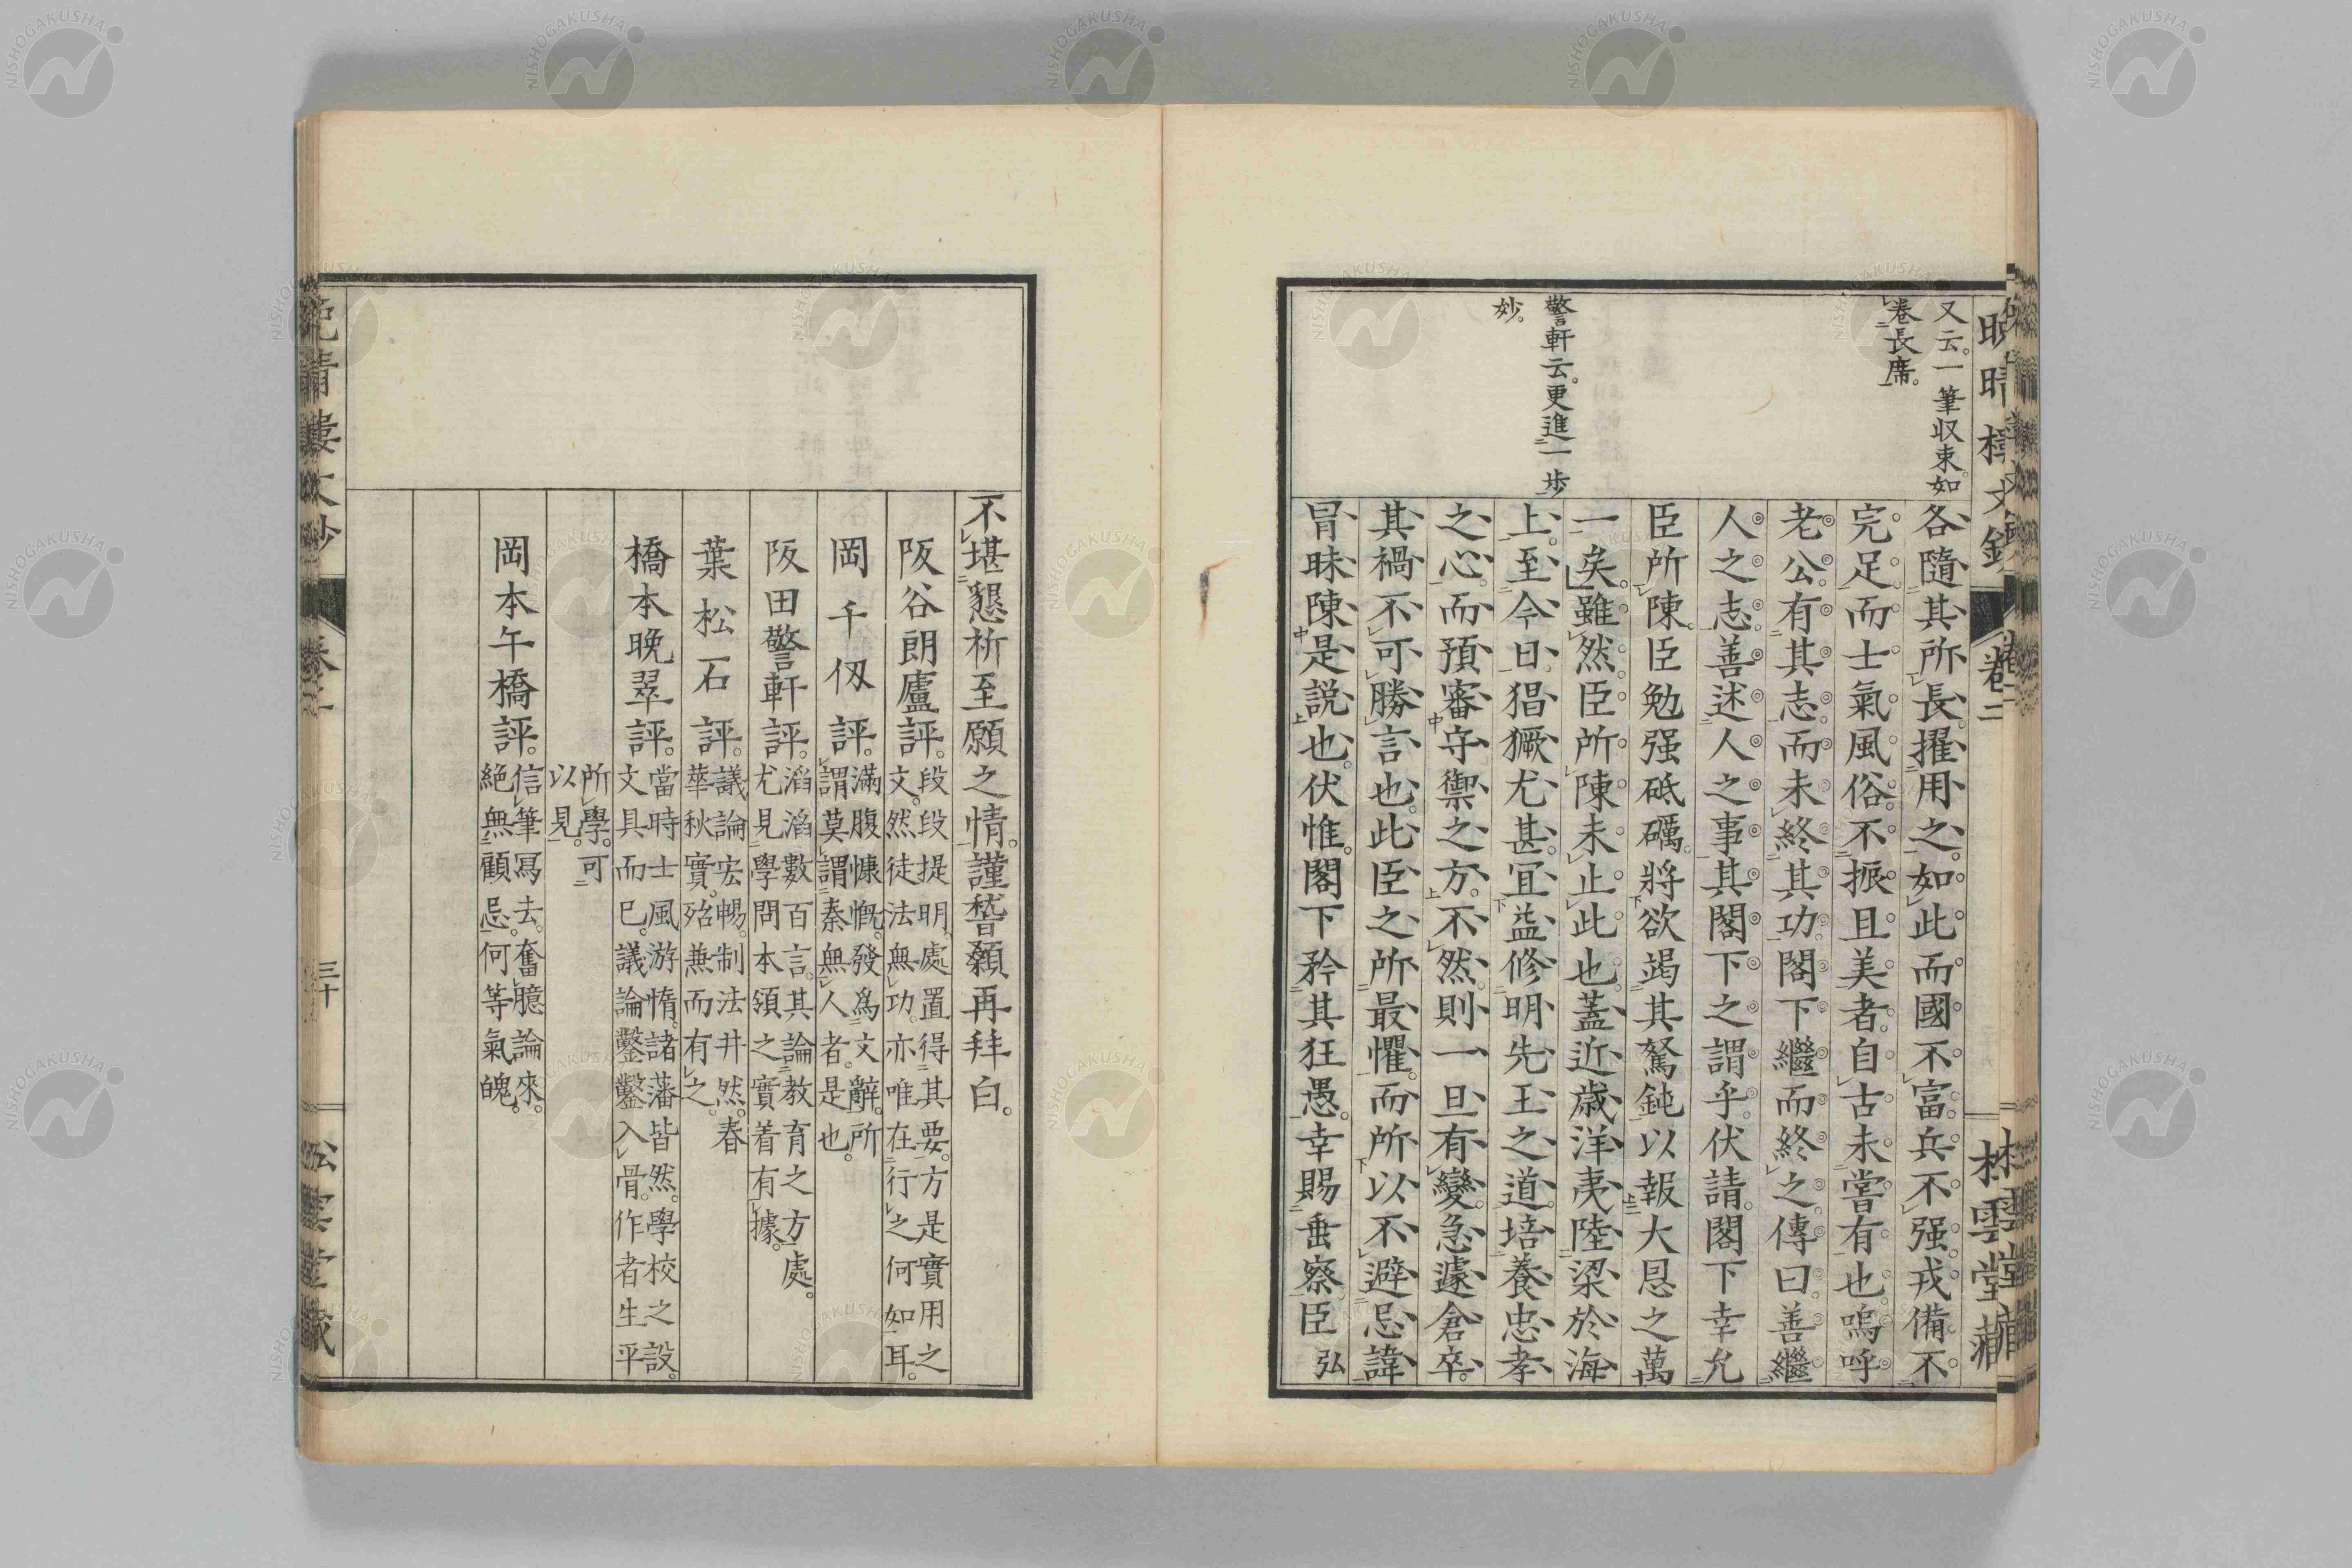 又云。一筆収束。如
卷長席。
警軒云。更進一歩
妙。
各隨其所長。擢用之。如此而國不富。兵不强。戎備不
完足。而士氣風俗。不振且美者。自古未嘗有也。嗚呼
老公。有其志。而未終其功。閣下繼而終之。傳曰。善繼
人之志。善述人之事。其閣下之謂乎。伏請。閣下幸允
臣所陳。臣勉强砥礪。將欲竭其駑鈍。以報大恩之萬
一矣。雖然。臣所陳。未止此也。蓋近歳洋夷陸梁於海
上。至今日。猖獗尤甚。宜益修明先王之道。培養忠孝
之心。而預審守禦之方。不然。則一旦有變。急遽倉卒。
其禍不可勝言也。此臣之所最懼。而所以不避忌諱
冒昧陳是説也。伏惟。閣下矜其狂愚。幸賜垂察。臣弘
卷二
不堪懇祈至願之情。謹稽顙再拜白。
阪谷朗廬評。段段提明。處置得其要。方是實用之
文。然徒法無功。亦唯在行之何如耳。
岡千仭評。滿腹慷慨。發爲文辭。所
謂莫謂秦無人者。是也。
阪田警軒評。滔滔數百言。其論教育之方處。
尤見學問本領之實着有據。
葉松石評。議論宏暢。制法井然。春
華秋實。殆兼而有之。
橋本晚翠評。當時士風游惰。諸藩皆然。學校之設。
文具而已。議論鑿鑿入骨。作者生平
所學。可
以見。
岡本午橋評。信筆冩去。奮臆論來。
絶無顧忌。何等氣魄。
三十